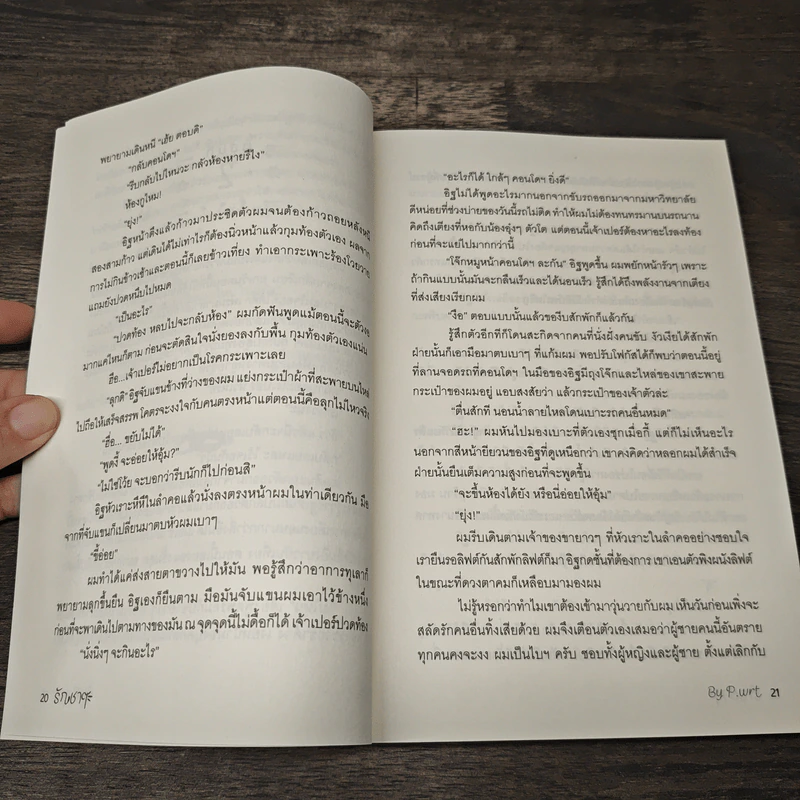 พยายามเดินหนี “เฮ้ย ตอบดิ”
“กลับคอนโดฯ”
“รีบกลับไปไหนวะ กลัวห้องหายรึไง”
ห้องกูไหม!
“ยุ่ง!”
อิฐหน้าตึงแล้วก้าวมาประชิดตัวผมจนต้องก้าวถอยหลังหนี
สองสามก้าว แต่เดินได้ไม่เท่าไรก็ต้องนิ่วหน้าแล้วกุมท้องตัวเอง ผลจาก
การไม่กินข้าวเช้าและตอนนี้ก็เลยข้าวเที่ยง ทำเอากระเพาะร้องโวยวาย
แถมยังปวดหนึบไปหมด
“เป็นอะไร”
“ปวดท้อง หลบไปจะกลับห้อง” ผมกัดฟันพูดแม้ตอนนี้จะตัวงอ
มากแค่ไหนก็ตาม ก่อนจะตัดสินใจนั่งยองลงกับพื้น กุมท้องตัวเองแน่น
ฮือ...เจ้าเปอร์ไม่อยากเป็นโรคกระเพาะเลย
“ลุกดิ” อิฐจับแขนข้างที่ว่างของผม แย่งกระเป๋าผ้าที่สะพายบนไหล่
ไปถือให้เสร็จสรรพ โคตรจะงงใจกับคนตรงหน้าแต่ตอนนี้คือลุกไม่ไหวจริง
“ฮื่อ... ขยับไม่ได้”
“พูดงี้ จะอ่อยให้อุ้ม?”
“ไม่ใช่โว้ย จะบอกว่ารีบนักก็ไปก่อนสิ”
อิฐหัวเราะหึหึในลำคอแล้วนั่งลงตรงหน้าผมในท่าเดียวกัน มือ
จากที่จับแขนก็เปลี่ยนมาตบหัวผมเบาๆ
“ขี้อ่อย”
ผมทำได้แค่ส่งสายตาขวางไปให้มัน พอรู้สึกว่าอาการทุเลาก็
พยายามลุกขึ้นยืน อิฐเองก็ยืนตาม มือมันจับแขนผมเอาไว้ข้างหนึ่ง
ก่อนที่จะพาเดินไปตามทางของมัน ณ จุดจุดนี้ไม่ดื้อก็ได้ เจ้าเปอร์ปวดท้อง
“นั่งนิ่งๆ จะกินอะไร”
20 รักพชาตะ
“อะไรก็ได้ ใกล้ๆ คอนโดฯ ยิ่งดี”
อิฐไม่ได้พูดอะไรมากนอกจากขับรถออกมาจากมหาวิทยาลัย
ดีหน่อยที่ช่วงบ่ายของวันนี้รถไม่ติด ทำให้ผมไม่ต้องทนทรมานบนรถนาน
คิดถึงเตียงที่หอกับน้องอุ๋งๆ ตัวโต แต่ตอนนี้เจ้าเปอร์ต้องหาอะไรลงท้อง
ก่อนที่จะแย่ไปมากกว่านี้
“โจ๊กหมูหน้าคอนโดฯ ละกัน” อิฐพูดขึ้น ผมพยักหน้ารัวๆ เพราะ
ถ้ากินแบบนั้นมันจะกลืนเร็วและได้นอนเร็ว รู้สึกได้ถึงพลังงานจากเตียง
ที่ส่งเสียงเรียกผม
“งือ” ตอบแบบนั้นแล้วของีบสักพักก็แล้วกัน
รู้สึกตัวอีกทีก็โดนสะกิดจากคนที่นั่งฝั่งคนขับ งัวเงียได้สักพัก
ฝ่ายนั้นก็เอามือมาตบเบาๆ ที่แก้มผม พอปรับโฟกัสได้ก็พบว่าตอนนี้อยู่
ที่ลานจอดรถที่คอนโดฯ ในมือของอิฐมีถุงโจ๊กและไหล่ของเขาสะพาย
กระเป๋าของผมอยู่ แอบสงสัยว่า แล้วกระเป๋าของเจ้าตัวล่ะ
“ตื่นสักที นอนน้ำลายไหลโดนเบาะรถคนอื่นหมด”
“ฮะ!” ผมหันไปมองเบาะที่ตัวเองซุกเมื่อกี้ แต่ก็ไม่เห็นอะไร
นอกจากสีหน้ายียวนของอิฐที่ดูเหนือกว่า เขาคงคิดว่าหลอกผมได้สำเร็จ
ฝ่ายนั้นยืนเต็มความสูงก่อนที่จะพูดขึ้น
“จะขึ้นห้องได้ยัง หรือนี่อ่อยให้อุ้ม”
“ยุ่ง!”
ผมรีบเดินตามเจ้าของขายาวๆ ที่หัวเราะในลำคออย่างชอบใจ
เรายืนรอลิฟต์กันสักพักลิฟต์ก็มา อิฐกดชั้นที่ต้องการ เขาเอนตัวพิงผนังลิฟต์
ในขณะที่ดวงตาคมก็เหลือบมามองผม
ไม่รู้หรอกว่าทำไมเขาต้องเข้ามาวุ่นวายกับผม เห็นวันก่อนเพิ่งจะ
สลัดรักคนอื่นทิ้งเสียด้วย ผมจึงเตือนตัวเองเสมอว่าผู้ชายคนนี้อันตราย
ทุกคนคงจะงง ผมเป็นไบฯ ครับ ชอบทั้งผู้หญิงและผู้ชาย ตั้งแต่เลิกกับ
By P.wrt 21